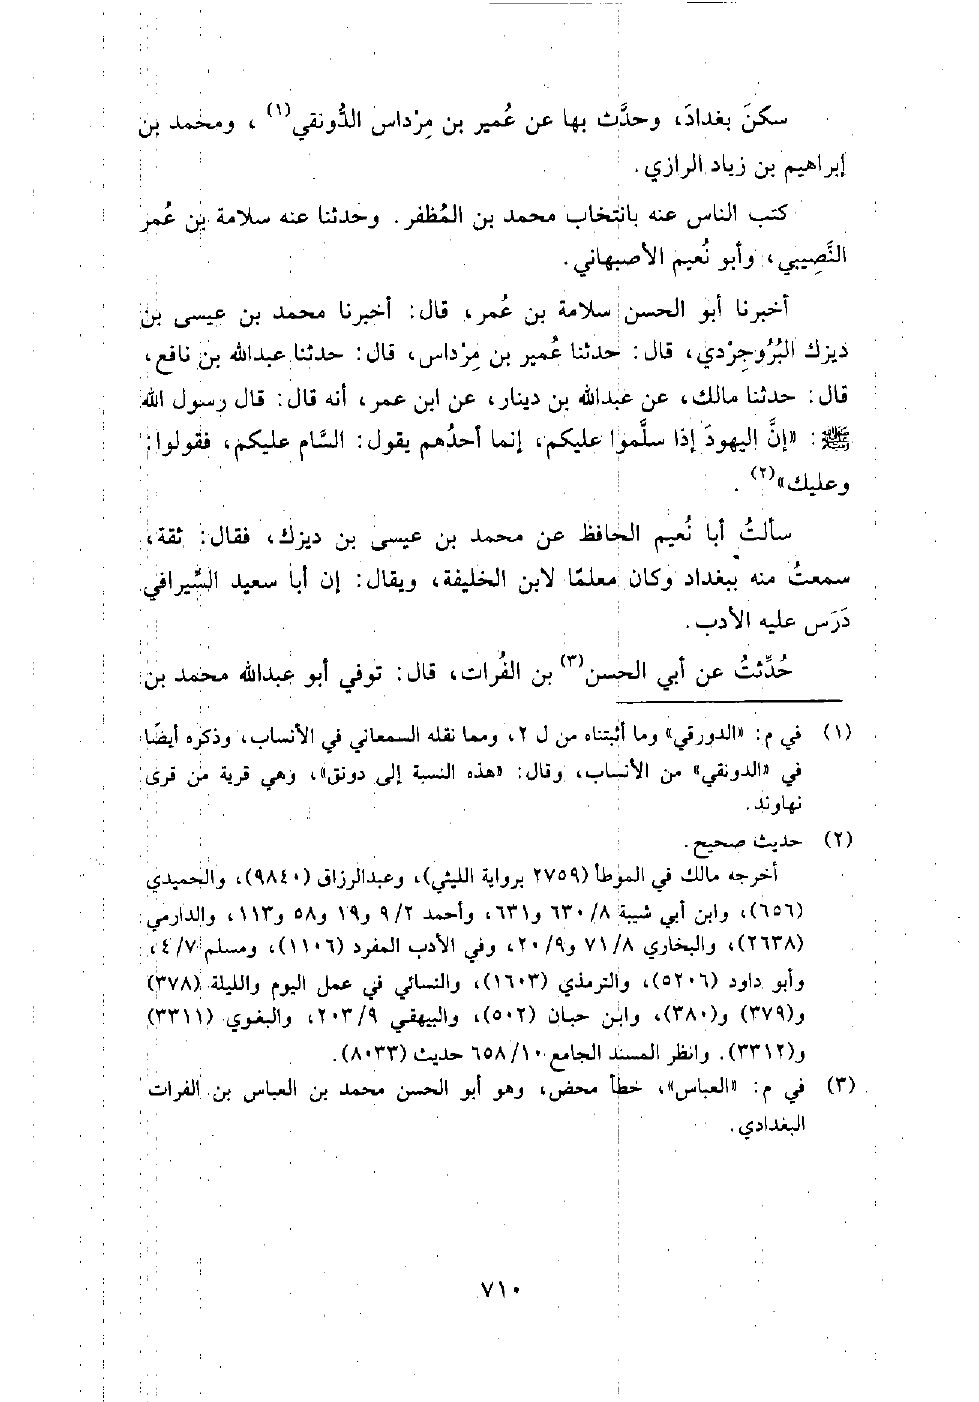 سكنَ بغدادَ، وحدَّث بها عن عُمير بن مِرْداس الدُّونقي(١)، ومحمد بن
إبراهيم بن زياد الرازي.
كتب الناس عنه بانتخاب محمد بن المُظفر. وحدثنا عنه سلامة بن عُمر
النَّصِيبي، وأبو نُعيم الأصبهاني.
أخبرنا أبو الحسن سلامة بن عُمر، قال: أخبرنا محمد بن عيسى بن
ديزك البُرُوجِرْدي، قال: حدثنا عُمير بن مِرْداس، قال: حدثنا عبدالله بن نافع،
قال: حدثنا مالك، عن عبدالله بن دينار، عن ابن عمر، أنه قال: قال رسول الله
ﷺ: «إنَّ اليهودَ إذا سلَّموا عليكم، إنما أحدُهم يقول: السَّام عليكم، فقولوا:
وعليك»(٢).
سألتُ أبا نُعيم الحافظ عن محمد بن عيسى بن ديزك، فقال: ثقة،
سمعتُ منه ببغداد وكان معلمًا لابن الخليفة، ويقال: إن أبا سعيد السِّيرافي
دَرَس عليه الأدب.
حُدِّثتُ عن أبي الحسن(٣) بن الفُرات، قال: توفي أبو عبدالله محمد بن
(١) في م: «الدورقي» وما أثبتناه من ل ٢، ومما نقله السمعاني في الأنساب، وذكره أيضًا
في «الدونقي» من الأنساب، وقال: «هذه النسبة إلى دونق»، وهي قرية من قرى
نهاوند.
(٢) حديث صحيح.
أخرجه مالك في الموطأ (٢٧٥٩ برواية الليثي)، وعبدالرزاق (٩٨٤٠)، والحميدي
(٦٥٦)، وابن أبي شيبة ٨/ ٦٣٠ و٦٣١، وأحمد ٢/ ٩ و١٩ و٥٨ و١١٣، والدارمي
(٢٦٣٨)، والبخاري ٨/ ٧١ و٩/ ٢٠، وفي الأدب المفرد (١١٠٦)، ومسلم ٧/ ٤،
وأبو داود (٥٢٠٦)، والترمذي (١٦٠٣)، والنسائي في عمل اليوم والليلة (٣٧٨)
و(٣٧٩) و(٣٨٠)، وابن حبان (٥٠٢)، والبيهقي ٩/ ٢٠٣، والبغوي (٣٣١١)
و(٣٣١٢). وانظر المسند الجامع ١٠/ ٦٥٨ حديث (٨٠٣٣).
(٣) في م: «العباس»، خطأ محض، وهو أبو الحسن محمد بن العباس بن الفرات
البغدادي.
٧١٠